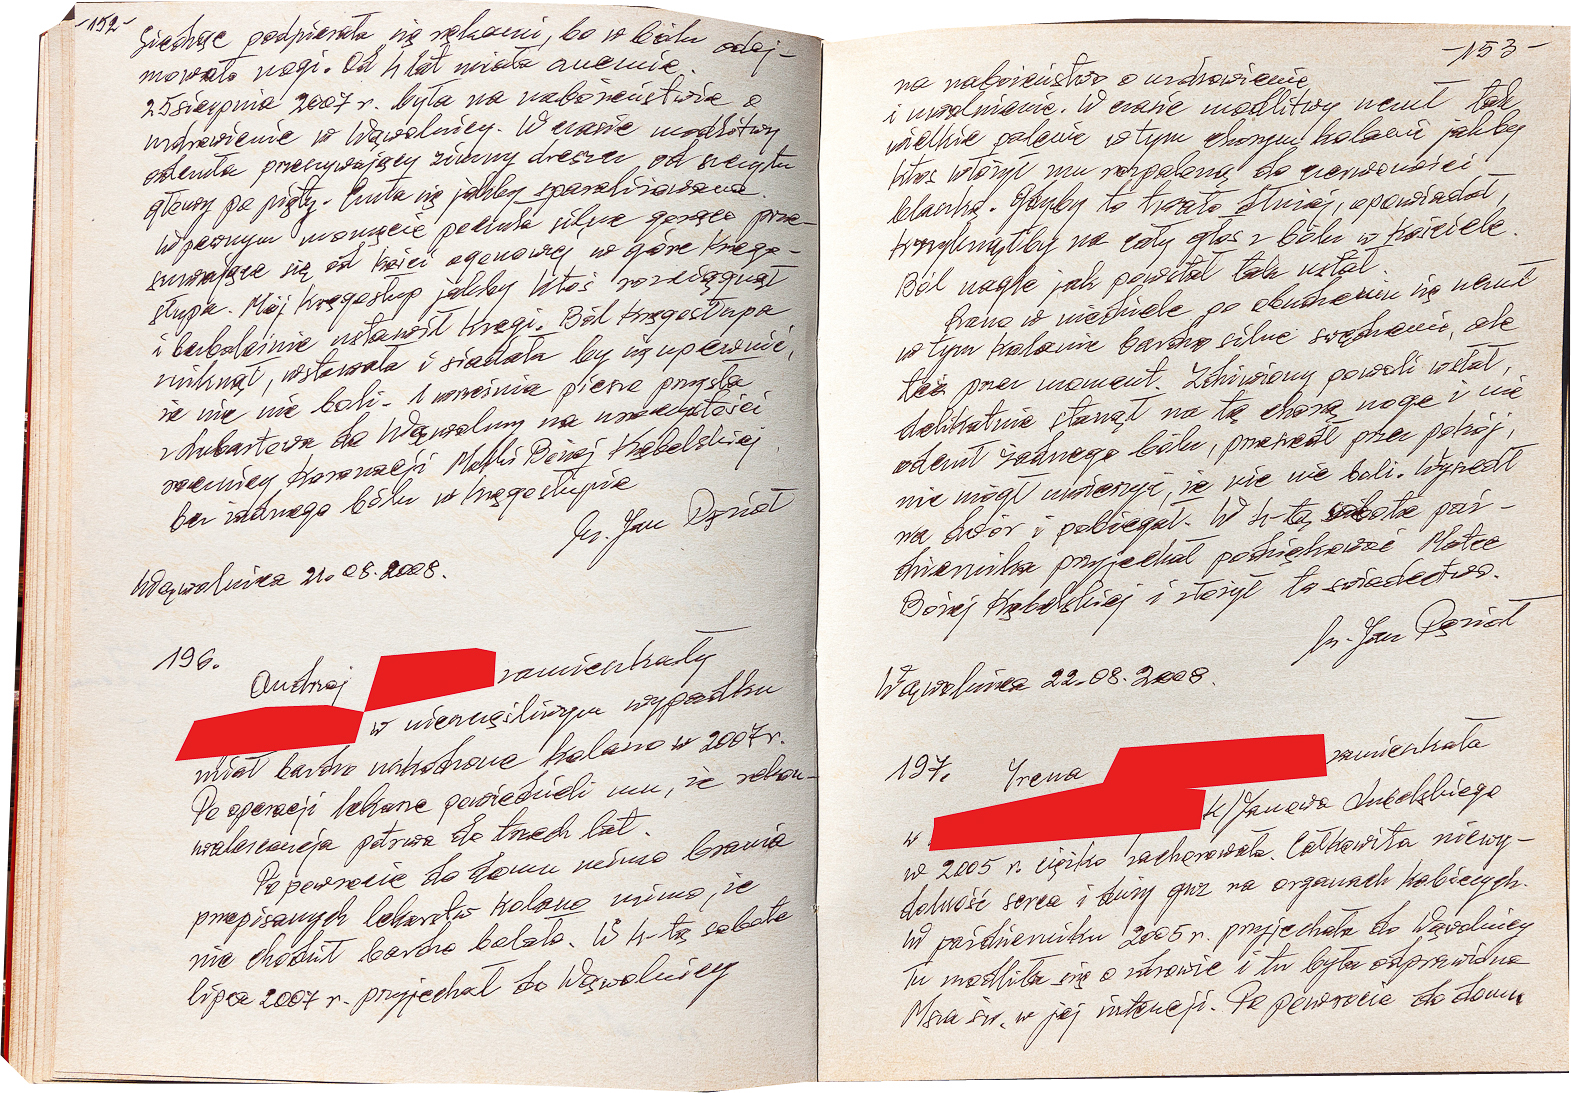 -152-
Siedząc podpierała się rękami, bo w bólu odej-
mowało nogi. Od 4 lat miała anemię.
25 sierpnia 2007 r. była na nabożeństwie o
uzdrowienie w Wąwolnicy. W czasie modlitwy
odczuła przeszywający zimny dreszcz, od szczytu
głowy po pięty. Czuła się jakby sparaliżowana.
W pewnym momęcie poczuła silne gorąco prze-
suwające się od kości ogonowej, w górę kręgo-
słupa. Mój kręgosłup jakby ktoś rozciągnął
i bezboleśnie ustawił kręgi. Ból kręgosłupa
zniknął, wstawała i siadała by się upewnić,
że nic nie boli. 1 września pieszo przyszła
z Lubartowa do Wąwolnicy na uroczystości
rocznicy Koronacji Matki Bożej Kębelskiej
bez żadnego bólu w kręgosłupie
ks. Jan Pęzioł
Wąwolnica 21.08.2008.
196.
Andrzej zamieszkały
w nieszczęśliwym wypadku
miał bardzo uszkodzone kolano w 2007 r.
Po operacji lekarze powiedzieli mu, że rekon-
walescencja potrwa do trzech lat.
Po powrocie do domu mimo brania
przepisanych lekarstw kolano mimo, że
nie chodził bardzo bolało. W 4-tą sobotę
lipca 2007 r. przyjechał do Wąwolnicy
-153-
na nabożeństwo o uzdrowienie
i uwolnienie. W czasie modlitwy uczuł tak
wielkie palenie w tym chorym kolanie jakby
ktoś włożył mu rozpaloną do czerwoności
blachę. Gdyby to trwało dłużej, opowiadał,
krzyknąłby na cały głos z bólu w kościele.
Ból nagle jak powstał tak ustał.
Rano w niedzielę po obudzeniu się uczuł
w tym kolanie bardzo silne swędzenie, ale
też przez moment. Zdziwiony powoli wstał,
delikatnie stanął na tą chorą nogę i nie
odczuł żadnego bólu, przeszedł przez pokój,
nie mógł uwierzyć, że nic nie boli. Wyszedł
na dwór i pobiegał. W 4-tą sobotę paź-
dziernika przyjechał podziękować Matce
Bożej Kębelskiej i złożył to świadectwo.
ks. Jan Pęzioł
Wąwolnica 22.08.2008.
197. Irena zamieszkała
w k/Janowa Lubelskiego
w 2005 r. ciężko zachorowała. Całkowita niewy-
dolność serca i duży guz na organach kobiecych.
W październiku 2005 r. przyjechała do Wąwolnicy
Tu modliła się o zdrowie i tu była odprawiona
Msza św. w jej intencji. Po powrocie do domu